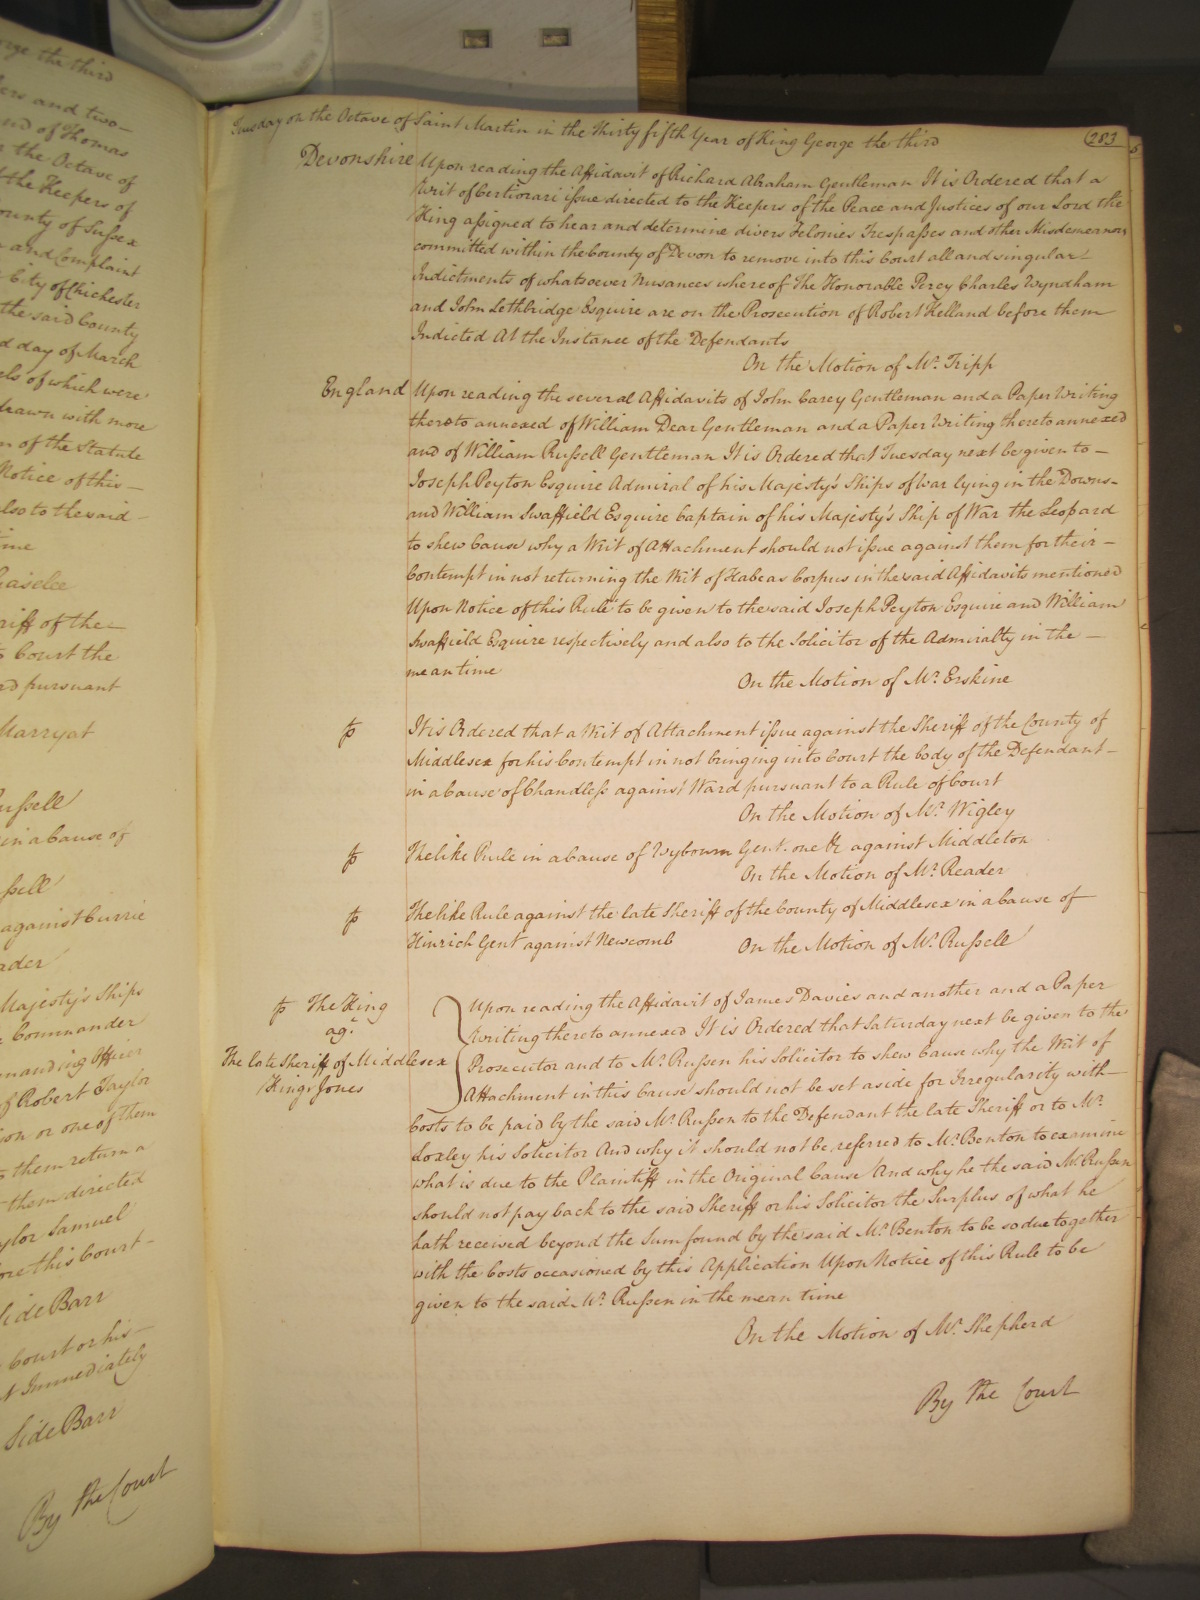 orge the third
ers and two
nd of Thomas
the Octave of
the Keepers of
ounty of Sussex
and Complaint
City of Chichester
the said County
d day of March
ls of which were
drawn with more
n of the Statute
Notice of this
lso to the said
ime
Gaselee
riff of the
Court the
rd pursuant
Marryat
Russell
in a Cause of
ssell
against Currie
ader
Majesty's Ships
Commander
manding Officer
of Robert Taylor
son or one of them
them return a
them directed
ylor Samuel
ore this Court
Side Barr
Court or his
t Immediately
Side Barr
By the Court
Tuesday on the Octave of Saint Martin in the Thirty fifth Year of King George the third
283
Devonshire
Upon reading the Affidavit of Richard Abraham Gentleman It is Ordered that a
Writ of Certiorari issue directed to the Keepers of the Peace and Justices of our Lord the
King assigned to hear and determine divers Felonies Trespasses and other Misdemeanors
committed within the County of Devon to remove into this Court all and singular
Indictments of whatsoever Nusances whereof The Honorable Percy Charles Wyndham
and John Lethbridge Esquire are on the Prosecution of Robert Kelland before them
Indicted At the Instance of the Defendants
On the Motion of Mr. Tripp
England
Upon reading the several Affidavits of John Carey Gentleman and a Paper Writing
thereto annexed of William Dear Gentleman and a Paper Writing thereto annexed
and of William Russell Gentleman It is Ordered that Tuesday next be given to
Joseph Peyton Esquire Admiral of his Majesty's Ships of War lying in the Downs
and William Swaffield Esquire Captain of his Majesty's Ship of War the Leopard
to shew Cause why a Writ of Attachment should not issue against them for their
Contempt in not returning the Writ of Habeas Corpus in the said Affidavits mentioned
Upon Notice of this Rule to be given to the said Joseph Peyton Esquire and William
Swaffield Esquire respectively and also to the Solicitor of the Admiralty in the
mean time
On the Motion of Mr. Erskine
It is Ordered that a Writ of Attachment issue against the Sheriff of the County of
Middlesex for his Contempt in not bringing into Court the body of the Defendant
in a Cause of Chandless against Ward pursuant to a Rule of Court
On the Motion of Mr. Wigley
The like Rule in a Cause of Wybourn Gent. one &c against Middleton
On the Motion of Mr. Reader
The like Rule against the late Sheriff of the County of Middlesex in a Cause of
Hinrich Gent against Newcomb
On the Motion of Mr. Russell
The King
agt.
The late Sheriff of Middlesex
King v Jones
Upon reading the Affidavit of James Davies and another and a Paper
Writing thereto annexed It is Ordered that Saturday next be given to the
Prosecutor and to Mr. Russen his Solicitor to shew Cause why the Writ of
Attachment in this Cause should not be set aside for Irregularity with
Costs to be paid by the said Mr. Russen to the Defendant the late Sheriff or to Mr.
Loxley his Solicitor And why it should not be referred to Mr. Benton to examine
what is due to the Plaintiff in the Original Cause And why he the said Mr. Russen
should not pay back to the said Sheriff or his Solicitor the Surplus of what he
hath received beyond the Sum found by the said Mr. Benton to be so due together
with the Costs occasioned by this Application Upon Notice of this Rule to be
given to the said Mr. Russen in the mean time
On the Motion of Mr. Shepherd
By the Court